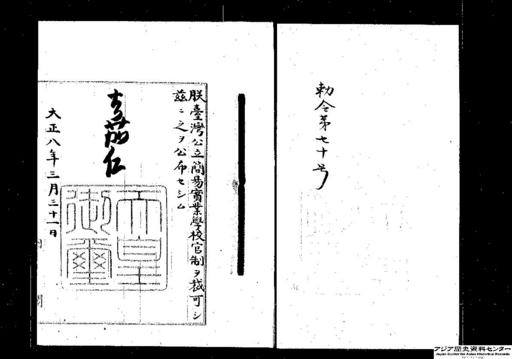 勅令第七十号
朕臺灣公立簡易實業學校官制ヲ裁可シ
茲ニ之ヲ公布セシム
嘉仁
天皇
御璽
大正八年三月三十一日
アジア歴史資料センター
Japan Center for Asian Historical Records